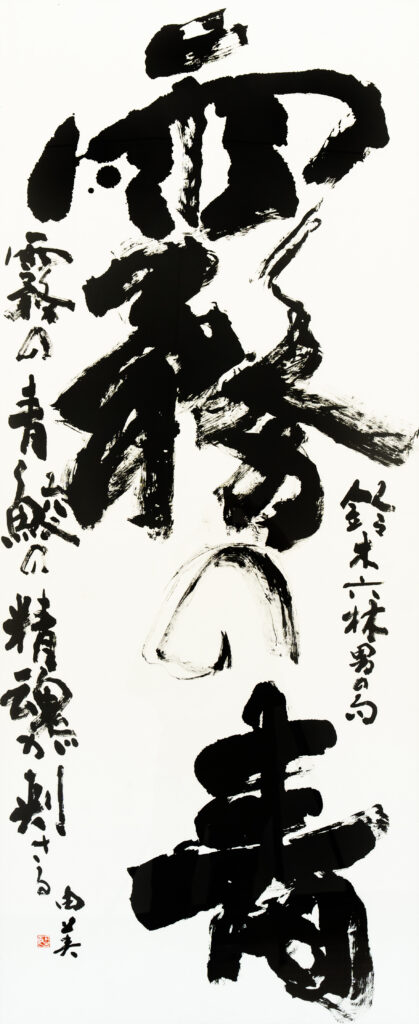 鈴木六林男の句
霧の青
霧の青 鯵の精魂が刺さる
由美